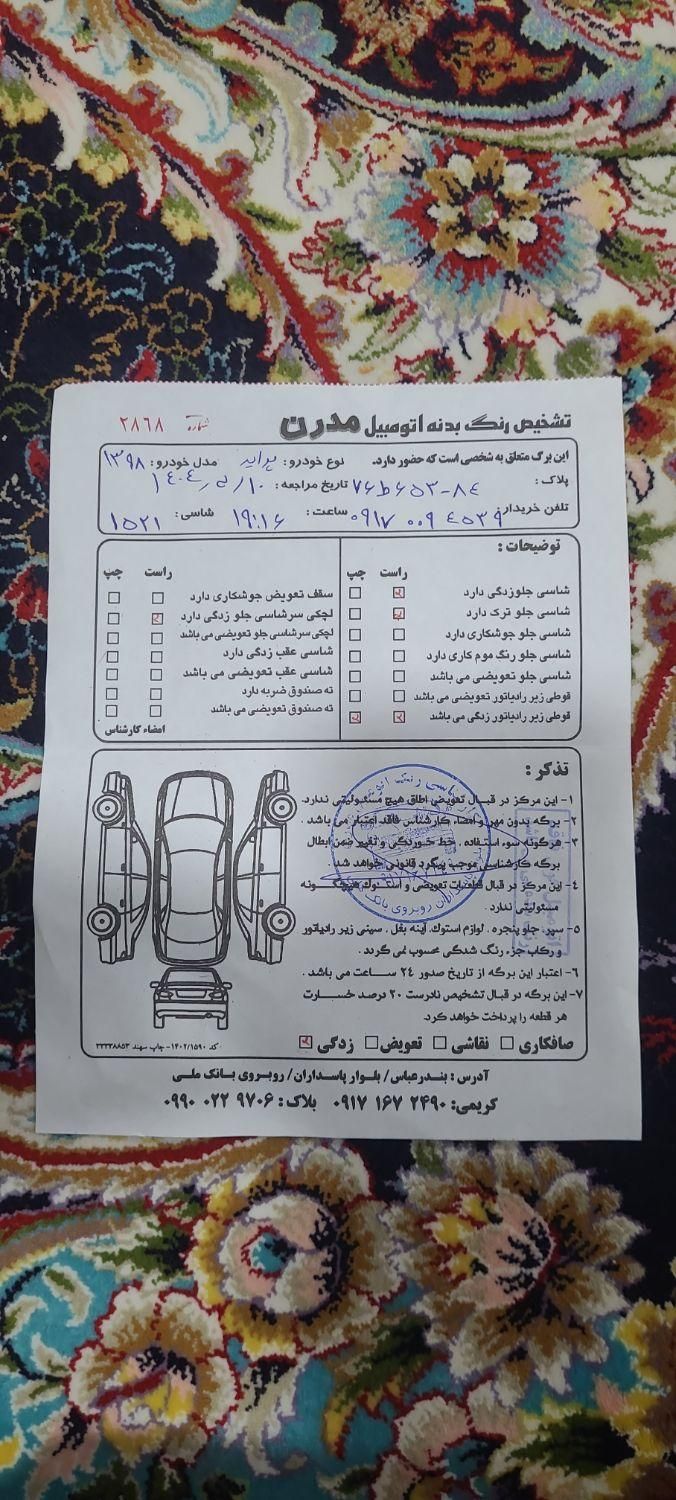 تشخیص رنگ بدنه اتومبیل مدرن
شماره ۲۸۶۸
این برگ متعلق به شخصی است که حضور دارد. نوع خودرو: پراید مدل خودرو: ۱۳۹۸
پلاک: ۷۶ط۶۵۳-۸۴ تاریخ مراجعه: ۱۴۰۴/۵/۱۰
تلفن خریدار: ۰۹۱۷ ۰۰۹ ٤٥٣٩ ساعت: ۱۹:۱۶ شاسی: ۱۵۲۱
توضیحات:
راست چپ
شاسی جلو زدگی دارد
شاسی جلو ترک دارد
شاسی جلو جوشکاری دارد
شاسی جلو رنگ موم کاری دارد
شاسی جلو تعویضی می باشد
قوطی زیر رادیاتور تعویضی می باشد
قوطی زیر رادیاتور زدگی می باشد
راست چپ
سقف تعویض جوشکاری دارد
لچکی سرشاسی جلو زدگی دارد
لچکی سرشاسی جلو تعویضی می باشد
شاسی عقب زدگی دارد
شاسی عقب تعویضی می باشد
ته صندوق ضربه دارد
ته صندوق تعویضی می باشد
امضاء کارشناس
تذکر:
۱- این مرکز در قبال تعویض اطاق هیچ مسئولیتی ندارد.
۲- برگه بدون مهر و امضاء کارشناس فاقد اعتبار می باشد.
۳- هرگونه سوء استفاده، خط خوردگی و تغییر ضمن ابطال
برگه کارشناسی موجب پیگرد قانونی خواهد شد
۴- این مرکز در قبال قطعات تعویضی و استوک هیچگونه
مسئولیتی ندارد.
۵- سپر، جلو پنجره، لوازم استوک، آینه بغل، سینی زیر رادیاتور
و رکاب جزء رنگ شدگی محسوب نمی گردد.
۶- اعتبار این برگه از تاریخ صدور ۲۴ ساعت می باشد.
۷- این برگه در قبال تشخیص نادرست ۲۰ درصد خسارت
هر قطعه را پرداخت خواهد کرد.
صافکاری نقاشی تعویض زدگی
کد ۱۴۰۲/۱۵۹۰- چاپ سهند ۳۳۳۳۸۸۵۳
آدرس: بندرعباس/ بلوار پاسداران/ روبروی بانک ملی
کریمی: ۰۹۱۷ ۱۶۷ ۲۴۹۰ بلاک: ۰۹۹۰ ۰۲۲ ۹۷۰۶